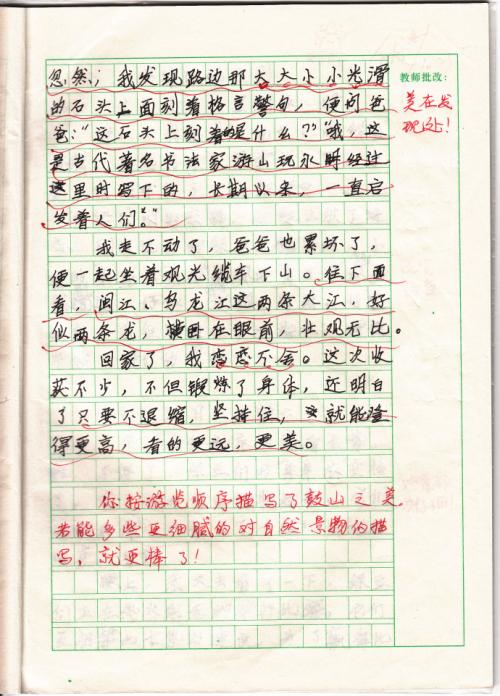 忽然，我发现路边那大大小小光滑
的石头上面刻着格言警句，便问爸
爸："这石头上刻着的是什么？""哦，这
是当代著名书法家游山玩水时经过
这里时写下的，长期以来，一直启
发着人们。"
我走不动了，爸爸也累坏了，
便一起坐着观光缆车下山。往下面
看，闽江、乌龙江这两条大江，好
似两条龙，横卧在眼前，壮观无比。
回家了，我恋恋不舍。这次收
获不少，不但锻炼了身体，还明白
了只要不退缩，坚持住，就能登
得更高，看的更远，更美。
教师批改：
美在发
现处！
你按游览顺序描写了鼓山之美，
若能多些更细腻的对自然景物的描
写，就更棒了！